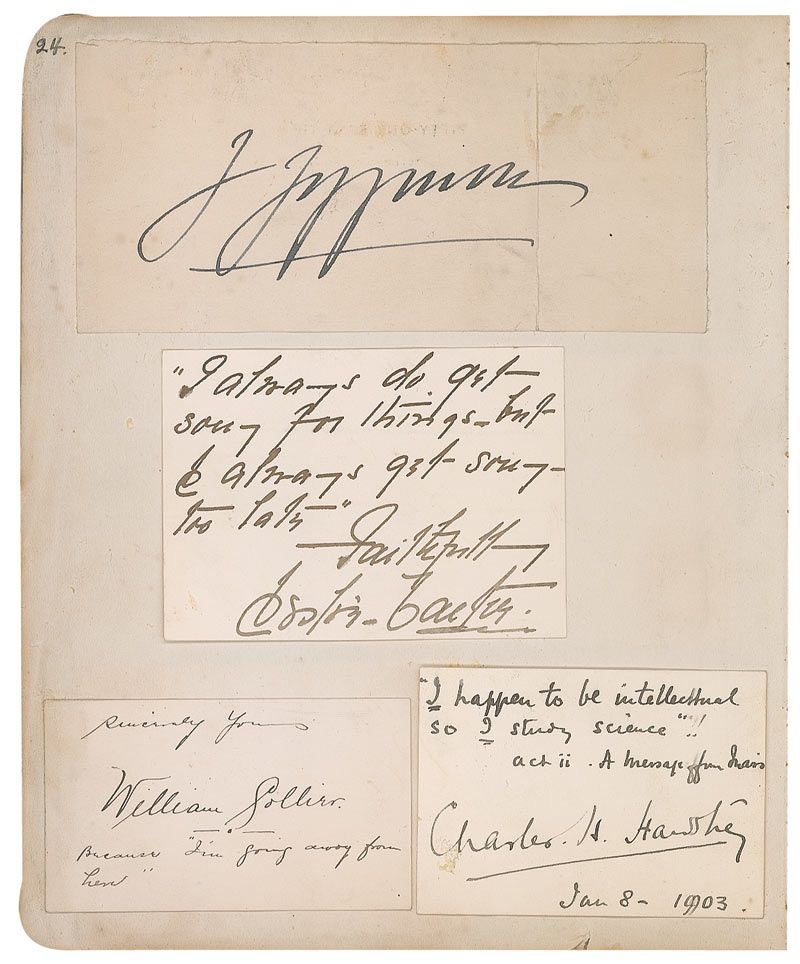 24.
J Jefferson
"I always do get
sorry for things - but
I always get sorry -
too late"
Faithfully
Leslie Carter.
Sincerely Yours
William Collier.
Because "I'm going away from
here"
"I happen to be intellectual
so I study science"!!
act ii . A Message from Mars
Charles. H. Hawtrey
Jan 8 - 1903.